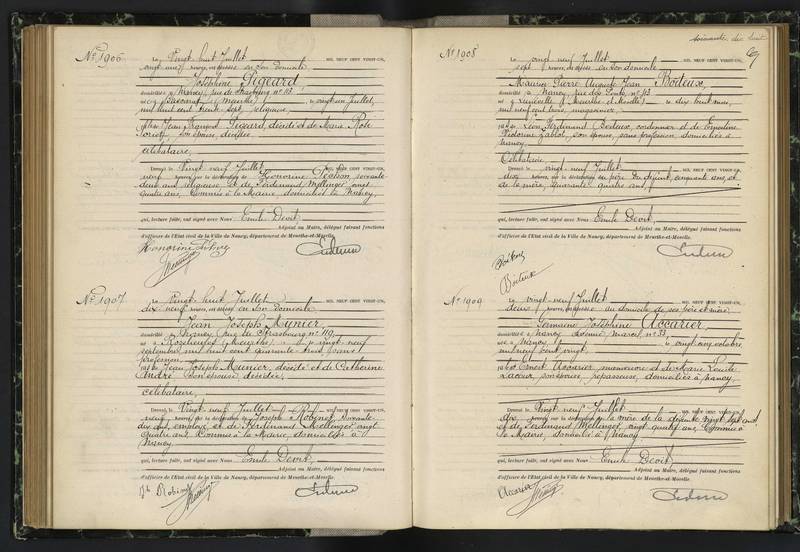 N° 1906
Le Vingt huit Juillet MIL NEUF CENT VINGT-UN,
vingt heures, est décédée en son domicile
Joséphine Pigeard
domiciliée à Nancy, rue de Strasbourg n° 113
née à (Meurthe) le vingt un Juillet,
mil huit cent trente sept, religieuse
fille de Jean François Pigeard, décédé et de Marie Rose
son épouse, décédée
célibataire,
Dressé le Vingt neuf Juillet MIL NEUF CENT VINGT-UN,
neuf heures, sur la déclaration de Honorine soixante
deux ans, religieuse, et de Ferdinand Mellinger, vingt
quatre ans, Commis à la Mairie, domiciliés à Nancy
qui, lecture faite, ont signé avec Nous Emile Devit,
Adjoint au Maire, délégué faisant fonctions
d'officier de l'Etat civil de la Ville de Nancy, département de Meurthe-et-Moselle.
Honorine
N° 1907
Le Vingt huit Juillet MIL NEUF CENT VINGT-UN,
dix neuf heures, est décédé en son domicile
Jean Joseph Munier
domicilié à Nancy, rue de Strasbourg n° 119
né à Roselieures (Meurthe) le vingt neuf
septembre mil huit cent quarante trois, sans
profession
fils de Jean Joseph Munier, décédé et de Catherine
André son épouse, décédée,
célibataire,
Dressé le Vingt neuf Juillet MIL NEUF CENT VINGT-UN,
neuf heures, sur la déclaration de Joseph Robinet, soixante
dix ans, employé, et de Ferdinand Mellinger, vingt
quatre ans, Commis à la Mairie, domiciliés à
Nancy
qui, lecture faite, ont signé avec Nous Emile Devit,
Adjoint au Maire, délégué faisant fonctions
d'officier de l'Etat civil de la Ville de Nancy, département de Meurthe-et-Moselle.
soixante dix huit
N° 1908
Le vingt neuf Juillet MIL NEUF CENT VINGT-UN,
sept heures, est décédé en son domicile
Maurice Pierre Auguste Jean Boiteux,
domicilié à Nancy, rue des Ponts, n° 43
né à Lunéville (Meurthe et Moselle) le dix huit mai,
mil neuf cent trois, magasinier,
fils de Léon Ferdinand Boiteux, cordonnier et de Ernestine
Victorine son épouse, sans profession, domiciliés à
Nancy.
Célibataire
Dressé le vingt neuf Juillet MIL NEUF CENT VINGT-UN,
dix heures, sur la déclaration du père du défunt, cinquante ans, et
de la mère, quarante quatre ans,
qui, lecture faite, ont signé avec Nous Emile Devit,
Adjoint au Maire, délégué faisant fonctions
d'officier de l'Etat civil de la Ville de Nancy, département de Meurthe-et-Moselle.
Boiteux
N° 1909
Le vingt neuf Juillet MIL NEUF CENT VINGT-UN,
deux heures, est décédée au domicile de ses père et mère,
Germaine Joséphine Accarier
domiciliée à Nancy n° 33
née à Nancy le vingt cinq octobre
mil neuf cent vingt,
fille de Ernest Accarier, manoeuvre et de Marie Louise
son épouse, repasseuse, domiciliés à Nancy,
Dressé le Vingt neuf Juillet MIL NEUF CENT VINGT-UN,
dix heures, sur la déclaration de la mère de la défunte, vingt sept ans,
et de Ferdinand Mellinger, vingt quatre ans, Commis à
la Mairie, domicilié à Nancy
qui, lecture faite, ont signé avec Nous Emile Devit,
Adjoint au Maire, délégué faisant fonctions
d'officier de l'Etat civil de la Ville de Nancy, département de Meurthe-et-Moselle.
Accarier